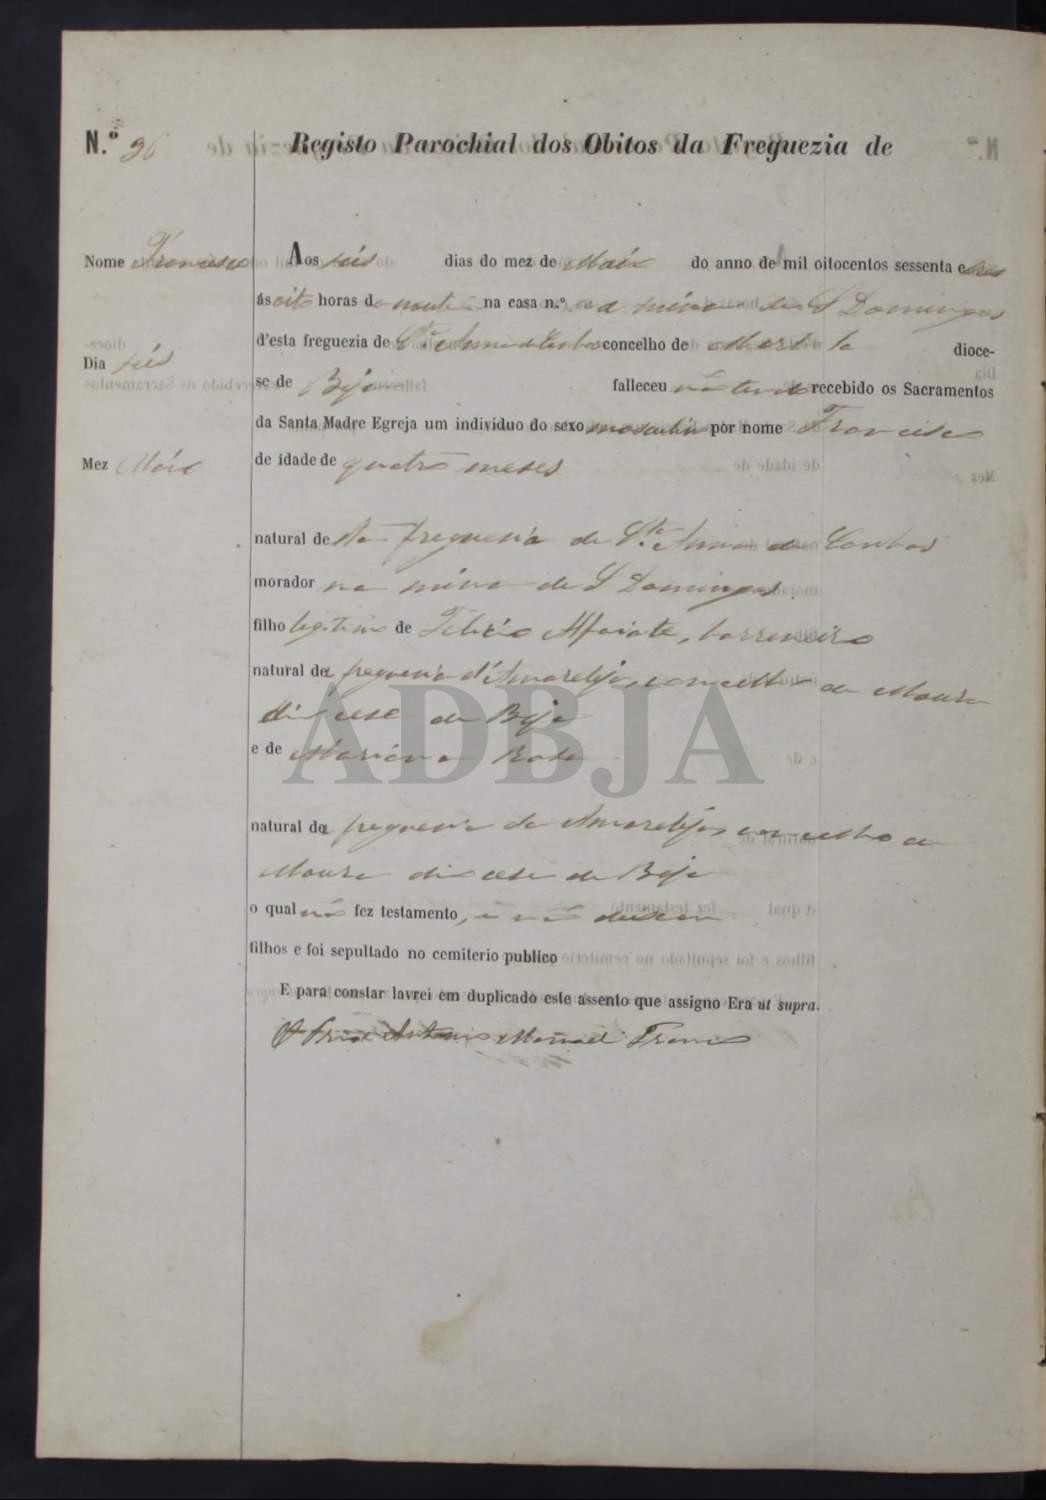 N.º 26 Registo Parochial dos Obitos da Freguezia de
Nome Francisco
Dia seis
Mez Maio
Aos seis dias do mez de Maio do anno de mil oitocentos sessenta e tres
ás oito horas da noute na casa n.º na mina de S Domingos
d'esta freguezia de Stª Anna de Cambas concelho de Mertola dioce-
se de Beja falleceu não tendo recebido os Sacramentos
da Santa Madre Egreja um individuo do sexo masculino por nome Francisco
de idade de quatro meses
natural desta freguesia de Stª Anna de Cambas
morador na mina de S Domingos
filho legitimo de barreneiro
natural da freguesia d'Amareleja, concelho de Moura
diocese de Beja
e de Marianna Rosa
natural da freguesia de Amareleja concelho de
Moura diocese de Beja
o qual não fez testamento, e não deixou
filhos e foi sepultado no cemiterio publico
E para constar lavrei em duplicado este assento que assigno Era ut supra.
O Prior Antonio Manoel Franco
ADBJA